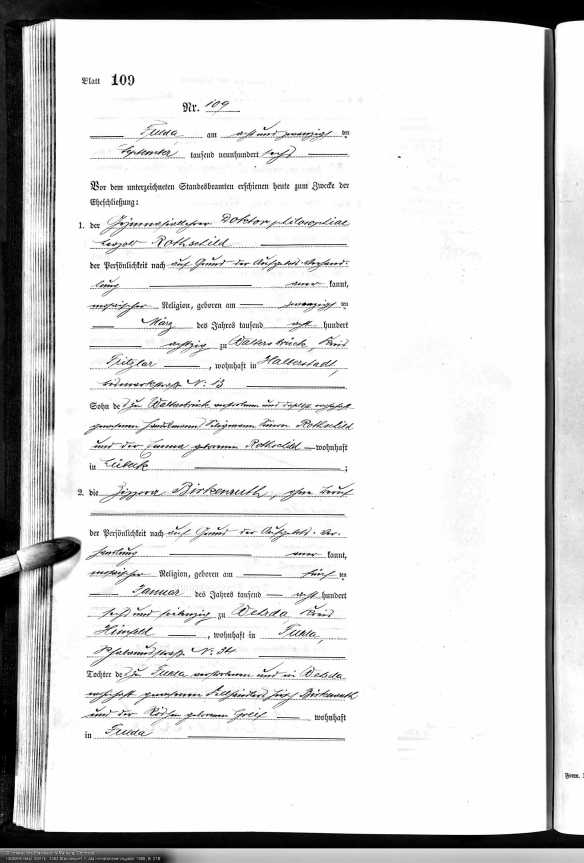 Blatt 109
Nr. 109
Fulda am acht und zwanzigsten
September tausend neunhundert sechs
Vor dem unterzeichneten Standesbeamten erschienen heute zum Zwecke der
Eheschließung:
1. der Gymnasiallehrer Doktor philosophiae
Leopold Rothschild
der Persönlichkeit nach auf Grund der Aufgebots-Verhand-
lung aner kannt,
mosaischer Religion, geboren am zwanzigsten
März des Jahres tausend acht hundert
achtzig zu Waltersbrück, Kreis
Fritzlar, wohnhaft in Halberstadt,
Bismarckstraße N: 13
Sohn des zu Waltersbrück verstorbenen und daselbst wohnhaft
gewesenen Handelsmanns Rothschild
und der Emma geborenen Rothschild wohnhaft
in Lübeck;
2. die Zippora Birkenruth, ohne Beruf
der Persönlichkeit nach auf Grund der Aufgebots-Ver-
handlung aner kannt,
mosaischer Religion, geboren am fünften
Januar des Jahres tausend acht hundert
sechs und siebenzig zu Wehrda Kreis
Hünfeld, wohnhaft in Fulda,
N: 34
Tochter des zu Fulda verstorbenen und in Wehrda
wohnhaft gewesenen Birkenruth
und der Röschen geborenen Greif wohnhaft
in Fulda
Form.